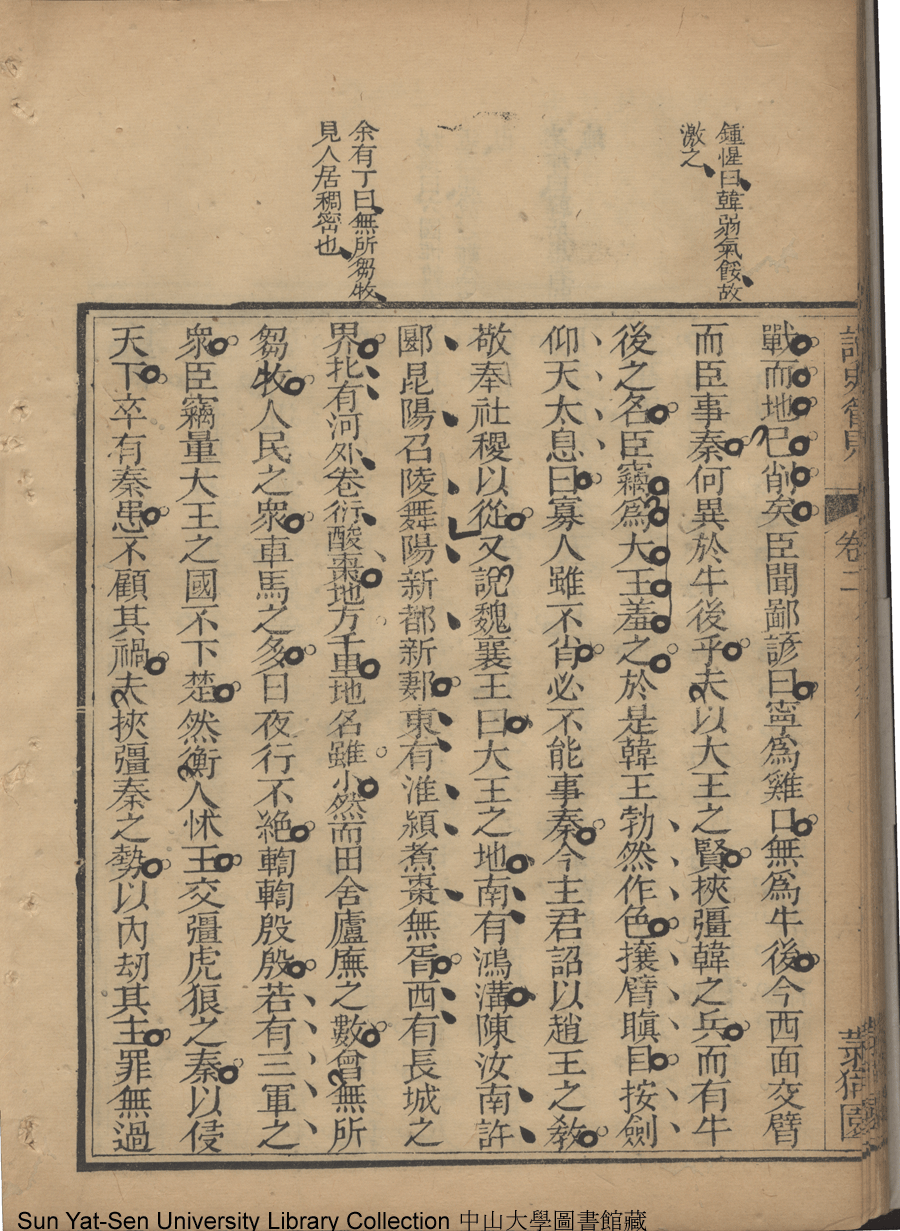 鍾惺曰韓弱氣餒故
激之
余有丁曰無所芻牧
見人居稠密也
卷二
戰而地已削矣臣聞鄙諺曰寧為雞口無為牛後今西面交臂
而臣事秦何異於牛後乎夫以大王之賢挾彊韓之兵而有牛
後之名臣竊為大王羞之於是韓王勃然作色攘臂瞋目按劍
仰天太息曰寡人雖不肖必不能事秦今主君詔以趙王之敎
敬奉社稷以從又說魏襄王曰大王之地南有鴻溝陳汝南許
郾昆陽召陵舞陽新都新郪東有淮潁煮棗無胥西有長城之
界北有河外卷衍酸棗地方千里地名雖小然而田舍廬廡之數曾無所
芻牧人民之衆車馬之多日夜行不絶輷輷殷殷若有三軍之
衆臣竊量大王之國不下楚然衡人怵王交彊虎狼之秦以侵
天下卒有秦患不顧其禍夫挾彊秦之勢以內劫其主罪無過
Sun Yat-Sen University Library Collection 中山大學圖書館藏